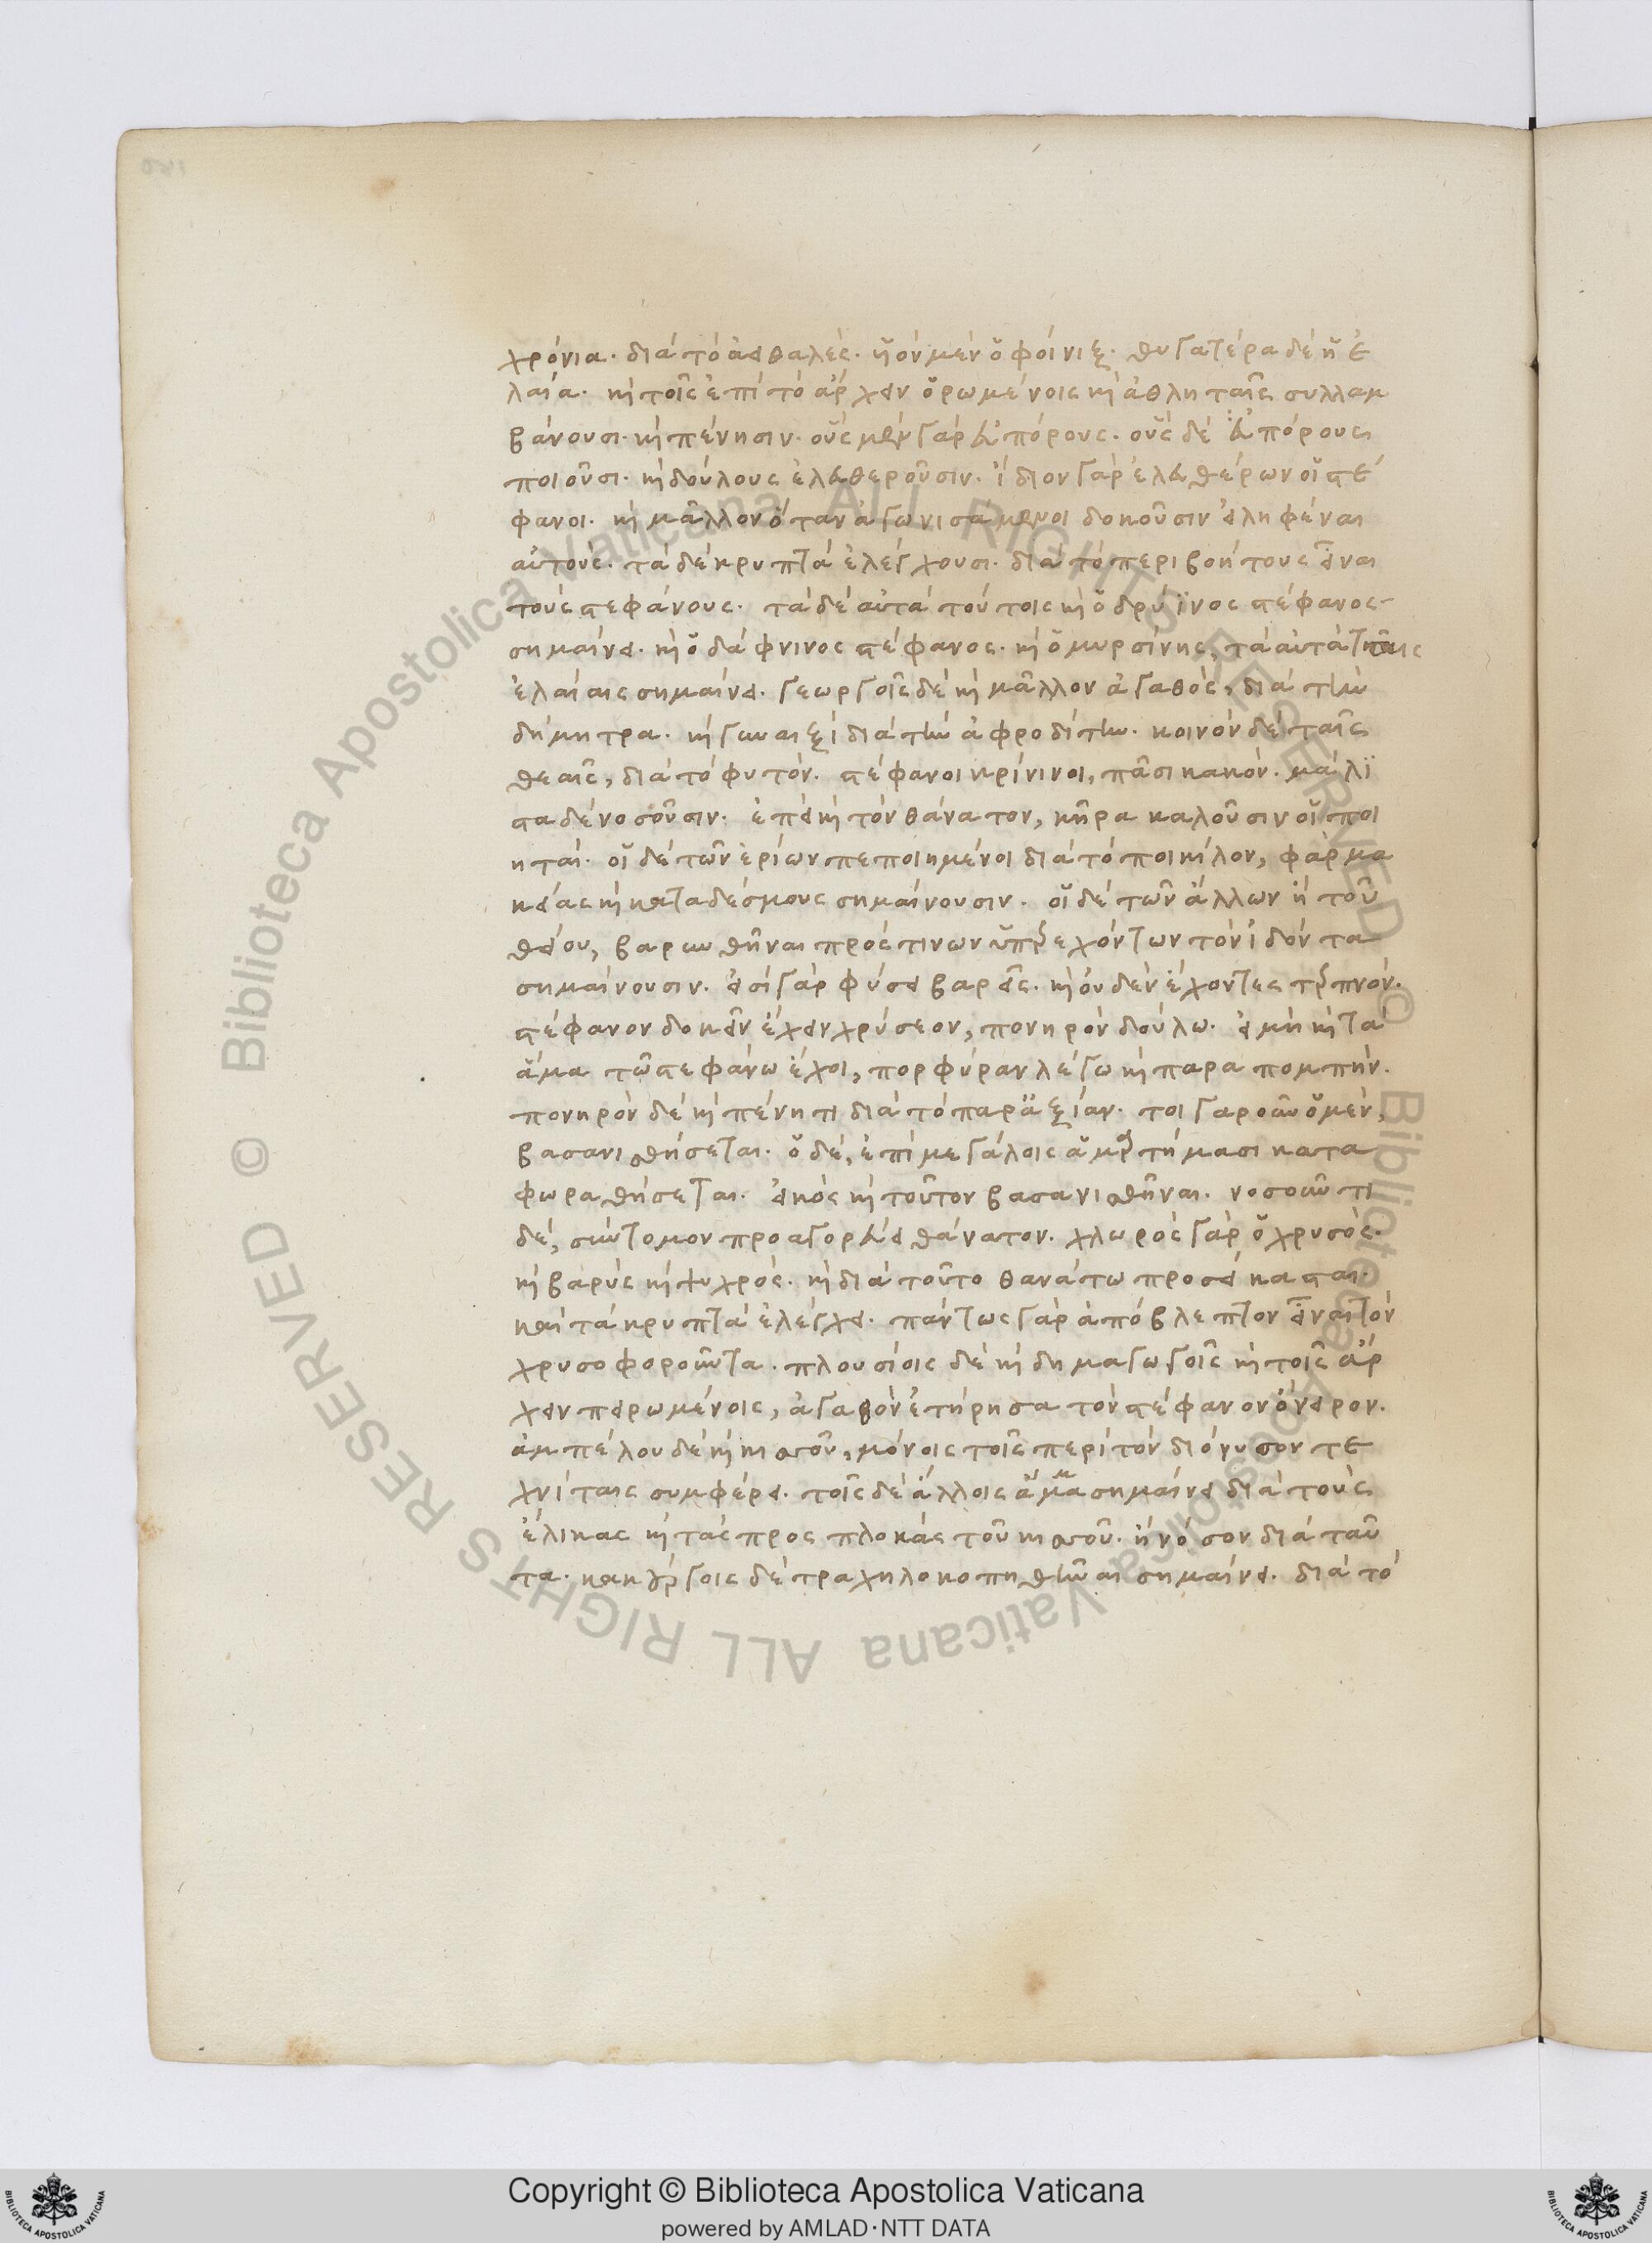 χρόνια· διὰ τὸ ἀειθαλές· υἱὸν μὲν ὁ φοίνιξ· θυγατέρα δὲ ἡ ἐ
λαία· καὶ τοῖς ἐπὶ τὸ ἄρχειν ὁρωμένοις καὶ ἀθληταῖς συλλαμ
βάνουσι· καὶ πένησιν· οὓς μὲν γὰρ εὐπόρους· οὓς δὲ εὐπόρους
ποιοῦσι· καὶ δούλους ἐλευθεροῦσιν· ἴδιον γὰρ ἐλευθέρων οἱ στέ
φανοι· καὶ μᾶλλον ὅταν ἀγωνισάμενοι δοκοῦσιν εἰληφέναι
αὐτούς· τὰ δὲ κρυπτὰ ἐλέγχουσι· διὰ τὸ περιβοήτους εἶναι
τοὺς στεφάνους· τὰ δὲ αὐτὰ τούτοις καὶ ὁ δρύϊνος στέφανος
σημαίνει· καὶ ὁ δάφνινος στέφανος· καὶ ὁ μυρσίνης, τὰ αὐτὰ ταῖς
ἐλαίαις σημαίνει· γεωργοῖς δὲ καὶ μᾶλλον ἀγαθός, διὰ τὴν
δήμητρα· καὶ γυναιξὶ διὰ τὴν ἀφροδίτην· κοινὸν δὲ ταῖς
θεαῖς, διὰ τὸ φυτόν· στέφανοι κρίνινοι, πᾶσι κακόν· μάλι
στα δὲ νοσοῦσιν· ἐπεὶ καὶ τὸν θάνατον, κῆρα καλοῦσιν οἱ ποι
ηταί· οἱ δὲ τῶν ἐρίων πεποιημένοι διὰ τὸ ποικίλον, φαρμα
κείας καὶ καταδέσμους σημαίνουσιν· οἱ δὲ τῶν ἄλλων ἢ τοῦ
θείου, βαρυνθῆναι πρός τινων ὑπερεχόντων τὸν ἰδόντα
σημαίνουσιν· εἰσὶ γὰρ φύσει βαρεῖς· καὶ οὐδὲν ἔχοντες τερπνόν·
στέφανον δοκεῖν ἔχειν χρύσεον, πονηρὸν δούλω· εἰ μὴ καὶ τὰ
ἅμα τῶ στεφάνω ἔχοι, πορφύραν λέγω καὶ παραπομπήν·
πονηρὸν δὲ καὶ πένητι διὰ τὸ παρ' ἀξίαν· τοιγαροῦν ὁ μὲν,
βασανισθήσεται· ὁ δὲ, ἐπὶ μεγάλοις ἁμαρτήμασι κατα
φωραθήσεται· εἰκὸς καὶ τοῦτον βασανισθῆναι· νοσοῦντι
δὲ, σύντομον προαγορεύει θάνατον· χλωρὸς γὰρ ὁ χρυσός·
καὶ βαρὺς καὶ ψυχρός· καὶ διὰ τοῦτο θανάτω προσείκασται·
καὶ τὰ κρυπτὰ ἐλέγχει· πάντως γὰρ ἀπόβλεπτον εἶναι τὸν
χρυσοφοροῦντα· πλουσίοις δὲ καὶ δημαγωγοῖς καὶ τοῖς ἄρ
χειν πειρωμένοις, ἀγαθὸν ἐτήρησα τὸν στέφανον ὄνειρον·
ἀμπέλου δὲ καὶ κισσοῦ, μόνοις τοῖς περὶ τὸν διόνυσον τε
χνίταις συμφέρει· τοῖς δὲ ἄλλοις ἅμμα σημαίνει διὰ τοὺς
ἕλικας καὶ τὰς προσπλοκὰς τοῦ κισσοῦ· ἢ νόσον διὰ ταῦ
τα· κακούργοις δὲ τραχηλοκοπηθῆναι σημαίνει· διὰ τὸ
Copyright © Biblioteca Apostolica Vaticana
powered by AMLAD·NTT DATA